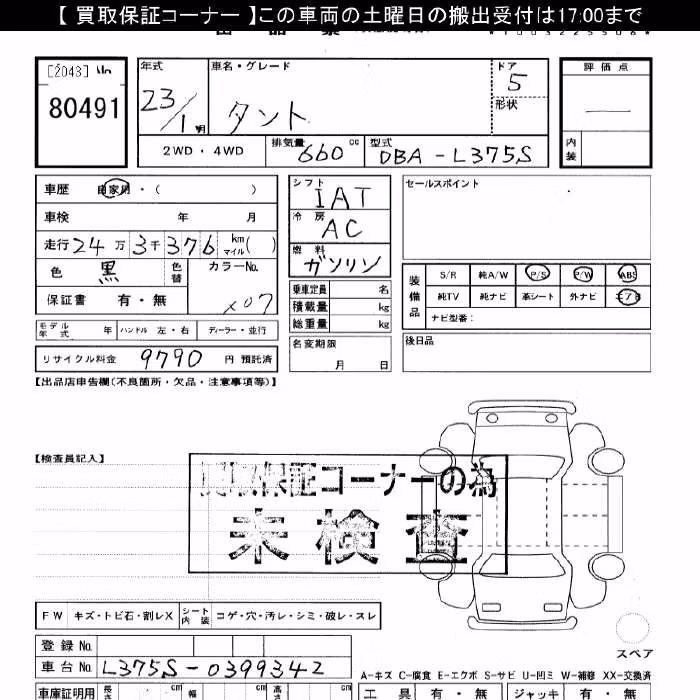 【 買取保証コーナー 】この車両の土曜日の搬出受付は17:00まで
[2043] No
80491
年式 車名・グレード ドア 評価点
23/1 明 タント 5 形状
2WD・4WD 排気量 660 cc 型式 DBA-L375S 内装
車歴 自家用・( )
シフト IAT
セールスポイント
車検 年 月
冷房 AC
走行 24万3千376 km マイル( )
燃料 ガソリン
色 黒 色替 カラーNo.
X07
保証書 有・無
乗車定員 名
積載量 kg
総重量 kg
装備品 S/R 純A/W P/S P/W ABS
純TV 純ナビ 革シート 外ナビ エアB
ナビ型番:
モデル年式 年 ハンドル 左・右 ディーラー・並行
名変期限 月 日
後日品
リサイクル料金 9790 円 預託済
【出品店申告欄(不良箇所・欠品・注意事項等)】
【検査員記入】
買取保証コーナーの為
未検査
FW キズ・トビ石・割レX シート内装 コゲ・穴・汚レ・シミ・破レ・スレ
登録 No.
車台 No. L375S-0399342
スペア
A-キズ C-腐食 E-エクボ S-サビ U-凹ミ W-補修 XX-交換済
車庫証明用 長さ cm 幅 cm 高さ cm
工具 有・無 ジャッキ 有・無